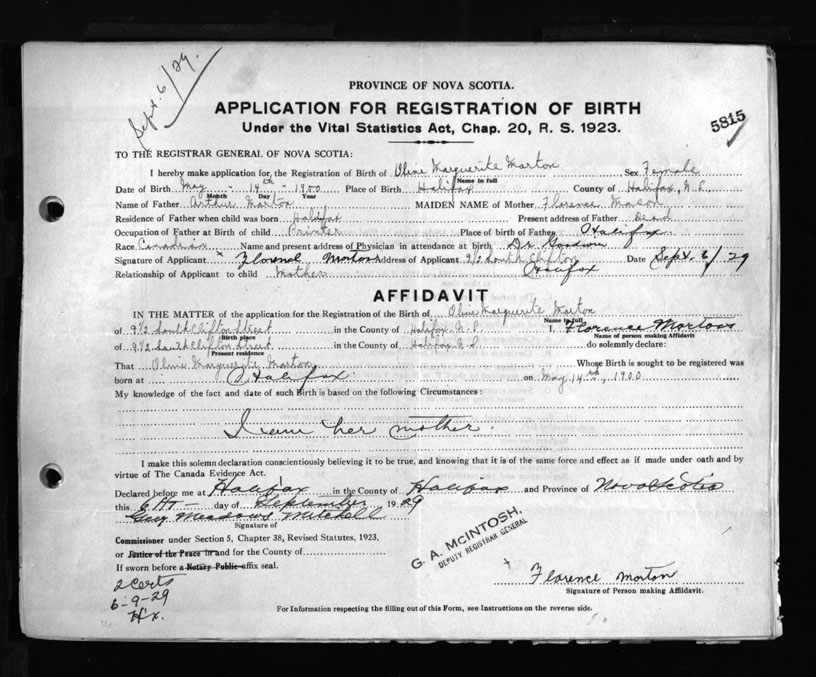 Sept. 6/29.
PROVINCE OF NOVA SCOTIA.
APPLICATION FOR REGISTRATION OF BIRTH
Under the Vital Statistics Act, Chap. 20, R. S. 1923.
5815
TO THE REGISTRAR GENERAL OF NOVA SCOTIA:
I hereby make application for the Registration of Birth of Olive Marguerite Morton Sex Female
Name in full
Date of Birth May - 14th - 1900 Place of Birth Halifax County of Halifax, N.S.
Month Day Year
Name of Father Arthur Morton MAIDEN NAME of Mother Florence Mason
Residence of Father when child was born Halifax Present address of Father Dead
Occupation of Father at Birth of child Printer Place of birth of Father Halifax
Race Canadian Name and present address of Physician in attendance at birth Dr Goodwin
Signature of Applicant x Florence Morton Address of Applicant 9½ South Clifton Date Sept 6/29
Relationship of Applicant to child Mother Halifax
AFFIDAVIT
IN THE MATTER of the application for the Registration of the Birth of Olive Marguerite Morton
Name in full
of 9½ South Clifton Street in the County of Halifax N.S. I, Florence Morton
Birth place Name of person making Affidavit
of 9½ South Clifton Street in the County of Halifax N.S. do solemnly declare:
Present residence
That Olive Marguerite Morton Whose Birth is sought to be registered was
born at Halifax on May 14th, 1900
My knowledge of the fact and date of such Birth is based on the following Circumstances:
I am her mother.
I make this solemn declaration conscientiously believing it to be true, and knowing that it is of the same force and effect as if made under oath and by
virtue of The Canada Evidence Act.
Declared before me at Halifax in the County of Halifax and Province of Nova Scotia
this 6th day of September 1929
Guy Meadows Mitchell
Signature of
Commissioner under Section 5, Chapter 38, Revised Statutes, 1923,
or Justice of the Peace in and for the County of
If sworn before a Notary Public affix seal.
G. A. McINTOSH,
DEPUTY REGISTRAR GENERAL
x Florence Morton
Signature of Person making Affidavit.
2 Certs
6-9-29
H'x.
For Information respecting the filling out of this Form, see Instructions on the reverse side.